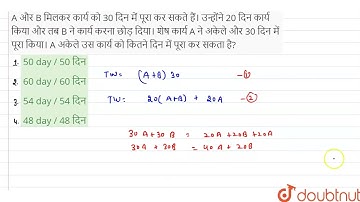 A और B मिलकर कार्य को 30 दिन में पूरा कर सकते हैं। उन्होंने 20 दिन कार्य
किया और तब B ने कार्य करना छोड़ दिया। शेष कार्य A ने अकेले और 30 दिन में
पूरा किया। A अकेले उस कार्य को कितने दिन में पूरा कर सकता है?
1. 50 day / 50 दिन
2. 60 day / 60 दिन
3. 54 day / 54 दिन
4. 48 day / 48 दिन
TW = (A+B) 30 —①
TW = 20(A+B) + 20A —②
30A + 30B = 20A + 20B + 20A
30A + 30B = 40A + 20B
doubtnut